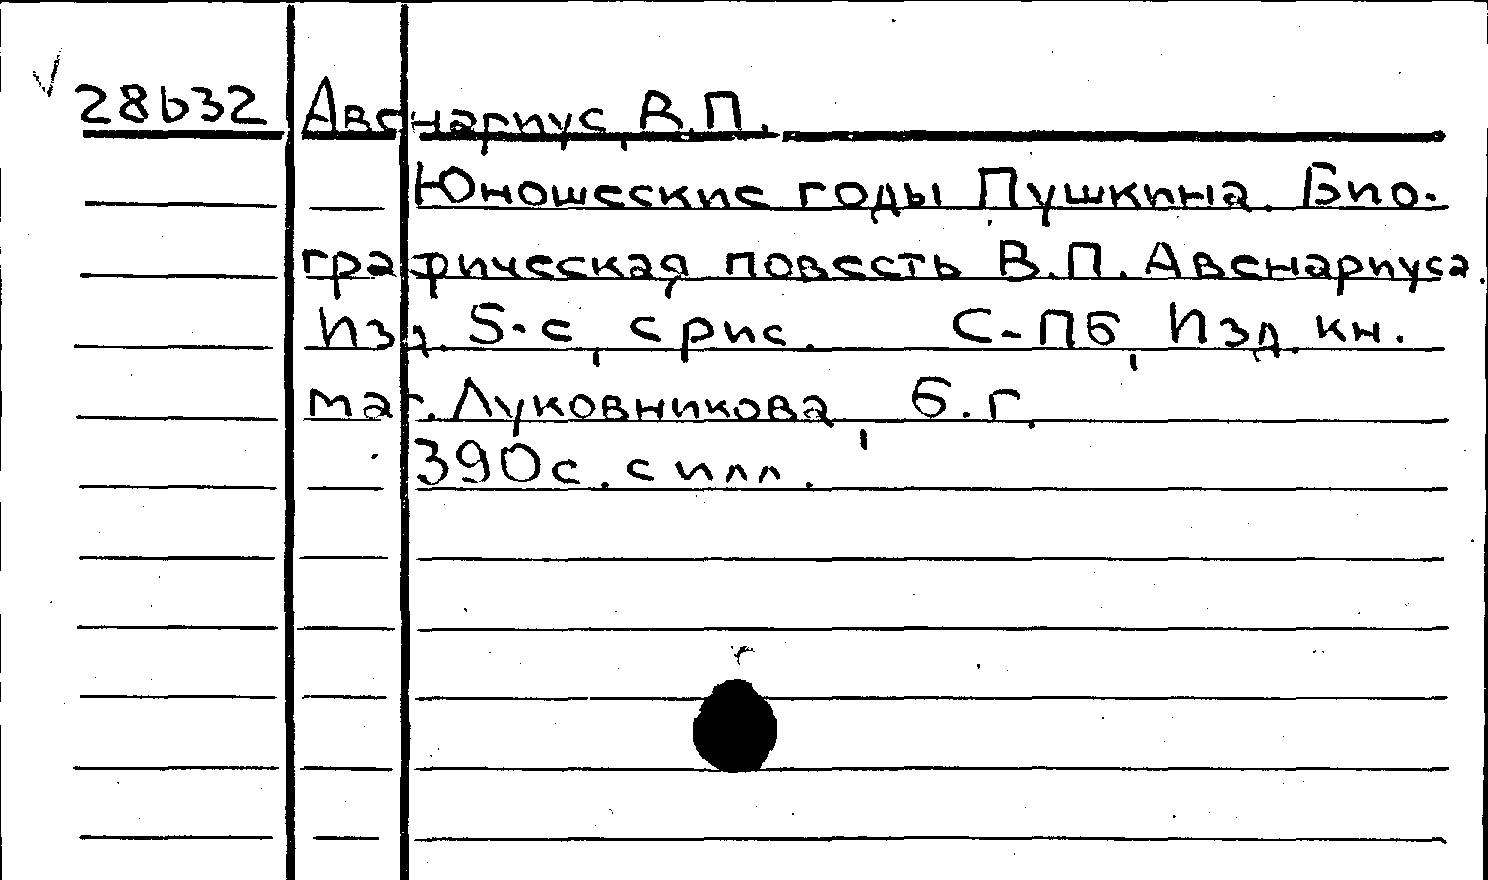 28632 Авенариус, В.П.
Юношеские годы Пушкина. Био-
графическая повесть В.П. Авенариуса.
Изд. 5-е, с рис. С-Пб, Изд. кн.
маг. Луковникова, б.г.
390с. с илл.